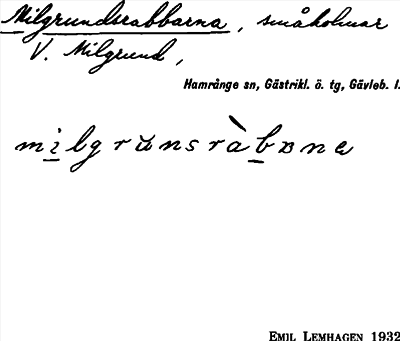 Milgrundsrabbarna, småholmar
V. Milgrund,
Hamrånge sn, Gästrikl. ö. tg, Gävleb. l.
milgrŭnsràbɒne
EMIL LEMHAGEN 1932